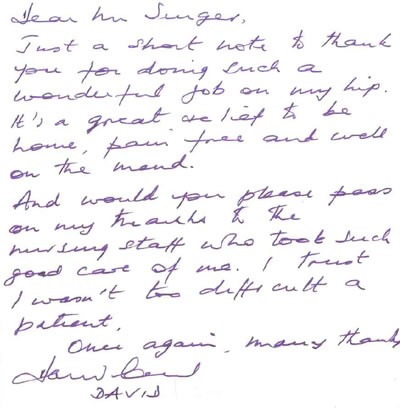 Dear Mr Singer,
Just a short note to thank
you for doing such a
wonderful job on my hip.
It's a great relief to be
home, pain free and well
on the mend.
And would you please pass
on my thanks to the
nursing staff who took such
good care of me. I trust
I wasn't too difficult a
patient.
Once again, many thanks
DAVID